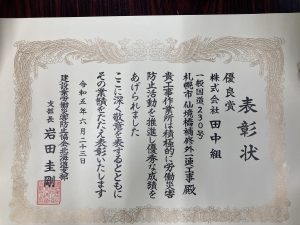 表彰状
優良賞
株式会社 田中組
一般国道230号
札幌市 仙境橋補修外一連工事 殿
貴工事作業所は積極的に労働災害
防止活動を推進し優秀な成績を
あげられました
ここに深く敬意を表するとともに
その業績をたたえ表彰いたします
令和五年六月二十三日
建設業労働災害防止協会北海道支部
支部長 岩田圭剛